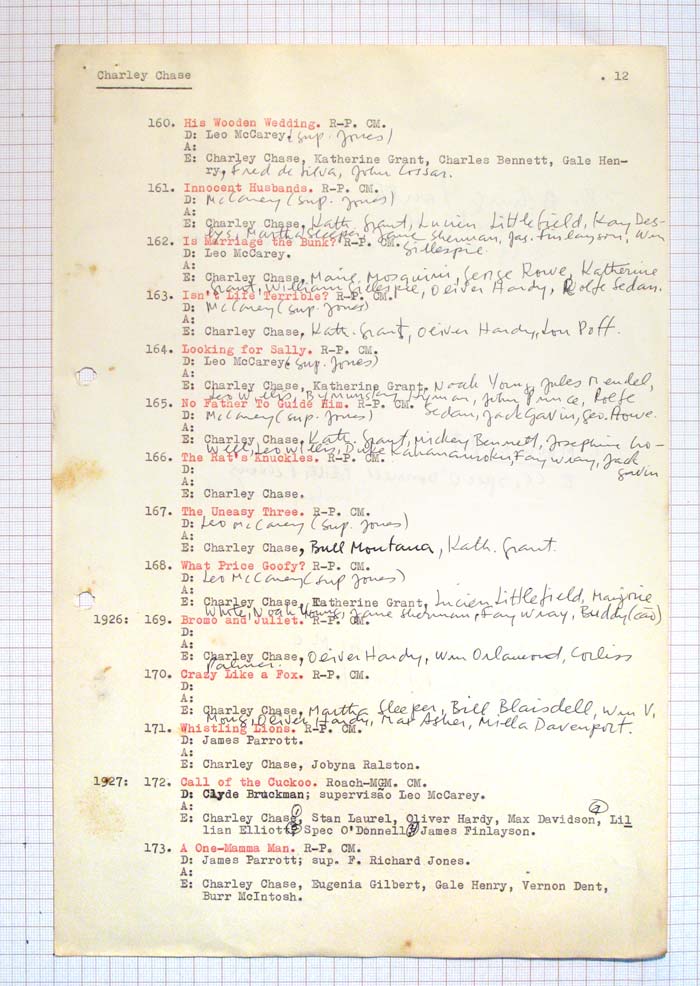 Charley Chase . 12
160. His Wooden Wedding. R-P. CM.
D: Leo McCarey. (sup. Jones)
A:
E: Charley Chase, Katherine Grant, Charles Bennett, Gale Hen-
ry, Fred de Silva, John Cossar.
161. Innocent Husbands. R-P. CM.
D: McCarey (sup. Jones)
A:
E: Charley Chase, Kath. Grant, Lucien Littlefield, Kay Des-
lys, Martha Sleeper, Jane Sherman, Jas. Finlayson, Wm
Gillespie.
162. Is Marriage the Bunk? R-P. CM.
D: Leo McCarey.
A:
E: Charley Chase, Marie Mosquini, George Rowe, Katherine
Grant, William Gillespie, Oliver Hardy, Rolfe Sedan.
163. Isn't Life Terrible? R-P. CM.
D: McCarey (sup. Jones)
A:
E: Charley Chase, Kath. Grant, Oliver Hardy, Lon Poff.
164. Looking for Sally. R-P. CM.
D: Leo McCarey (sup. Jones)
A:
E: Charley Chase, Katherine Grant, Noah Young, Jules Mendel,
Leo Willis, Lyman, John Prince, Rolfe
Sedan, Jack Gavin, Geo. Rowe.
165. No Father To Guide Him. R-P. CM.
D: McCarey (sup. Jones)
A:
E: Charley Chase, Kath. Grant, Mickey Bennett, Josephine Cro-
well, Leo Willis, Duke Kahanamoku, Fay Wray, Jack
Gavin
166. The Rat's Knuckles. R-P. CM.
D:
A:
E: Charley Chase.
167. The Uneasy Three. R-P. CM.
D: Leo McCarey (sup. Jones)
A:
E: Charley Chase, Bull Montana, Kath. Grant.
168. What Price Goofy? R-P. CM.
D: Leo McCarey (sup Jones)
A:
E: Charley Chase, Katherine Grant, Lucien Littlefield, Marjorie
White, Noah Young, Jane Sherman, Fay Wray, Buddy (cão)
1926: 169. Bromo and Juliet. R-P. CM.
D:
A:
E: Charley Chase, Oliver Hardy, Wm Orlamond, Corliss
Palmer.
170. Crazy Like a Fox. R-P. CM.
D:
A:
E: Charley Chase, Martha Sleeper, Bill Blaisdell, Wm V.
Mong, Oliver Hardy, Max Asher, Milla Davenport.
171. Whistling Lions. R-P. CM.
D: James Parrott.
A:
E: Charley Chase, Jobyna Ralston.
1927: 172. Call of the Cuckoo. Roach-MGM. CM.
D: Clyde Bruckman; supervisão Leo McCarey.
A:
E: Charley Chase, Stan Laurel, Oliver Hardy, Max Davidson, Lil
lian Elliott, Spec O'Donnell, James Finlayson.
173. A One-Mamma Man. R-P. CM.
D: James Parrott; sup. F. Richard Jones.
A:
E: Charley Chase, Eugenia Gilbert, Gale Henry, Vernon Dent,
Burr McIntosh.